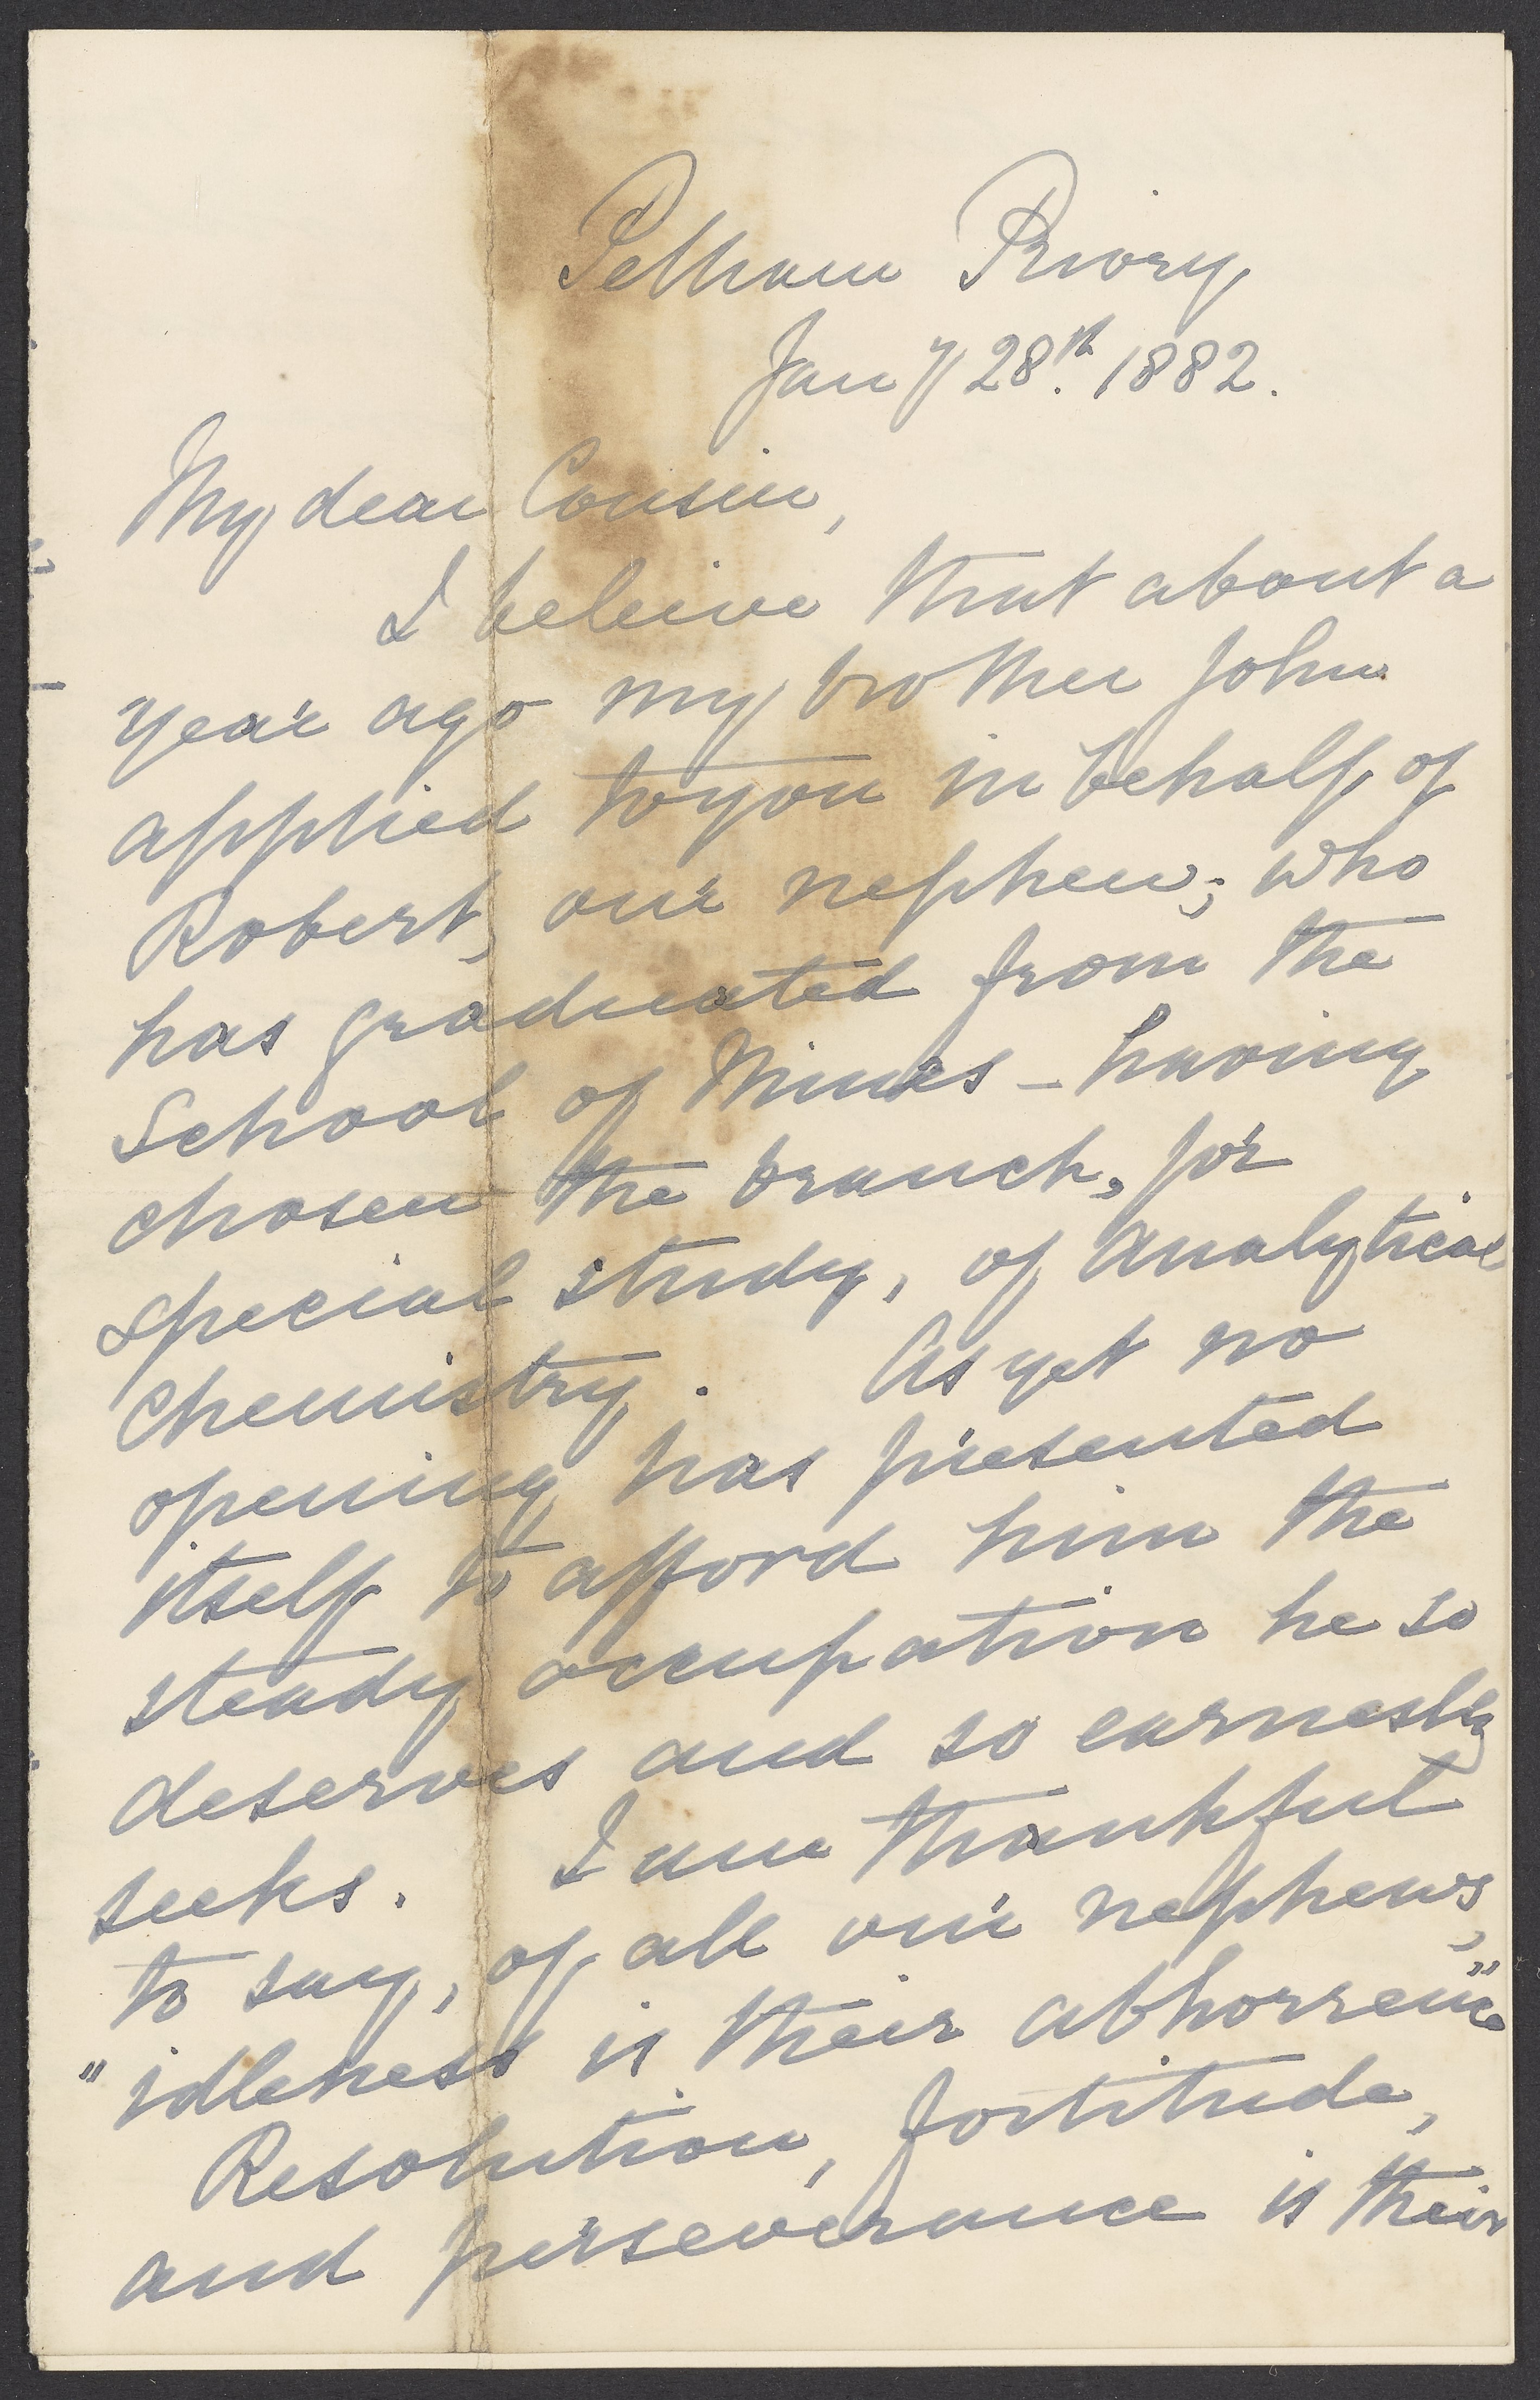 Pelham Priory
Jany 28.th 1882.
My dear Cousin,
I beleive that about a
year ago my brother John
applied to you in behalf of
Robert, our nephew; who
has graduated from the
School of Mines - having
chosen the branch, for
special study, of Analytical
Chemistry. As yet no
opening has presented
itself to afford him the
steady occupation he so
deserves and so earnestly
seeks. I am thankful
to say, of all our nephews,
"idleness is their abhorrence"
Resolution, fortitude,
and perseverance is their